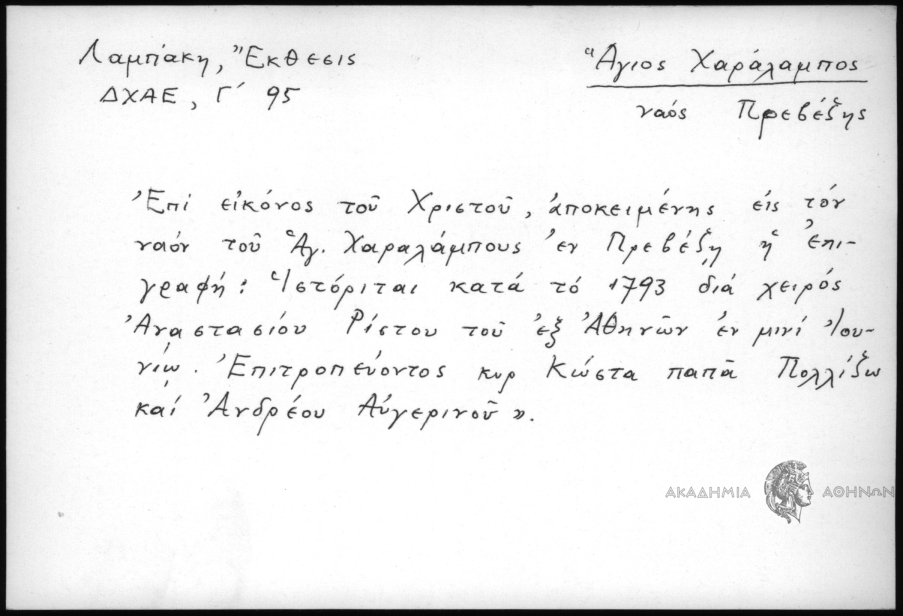 Λαμπάκη, Ἔκθεσις
ΔΧΑΕ, Γ´ 95
Ἅγιος Χαράλαμπος
ναός Πρεβέζης
Ἐπί εἰκόνος τοῦ Χριστοῦ, ἀποκειμένης εἰς τόν
ναόν τοῦ Ἁγ. Χαραλάμπους ἐν Πρεβέζῃ ἡ ἐπι-
γραφή: Ἱστόριται κατά τό 1793 διά χειρός
Ἀναστασίου Ρίστου τοῦ ἐξ Ἀθηνῶν ἐν μινί Ἰου-
νίῳ. Ἐπιτροπεύοντος κυρ Κώστα παπᾶ Πολλίξω
καί Ἀνδρέου Αὐγερινοῦ».
ΑΚΑΔΗΜΙΑ ΑΘΗΝΩΝ